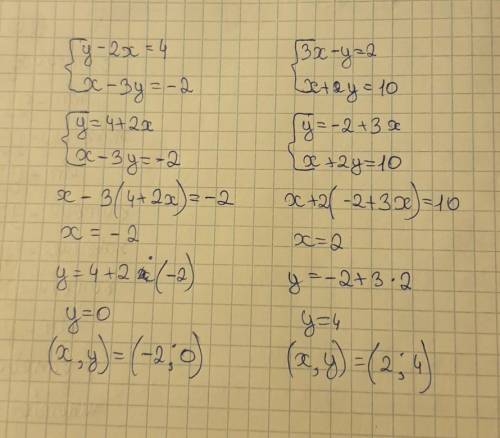 y-2x=4
x-3y=-2
y=4+2x
x-3y=-2
x-3(4+2x)=-2
x=-2
y=4+2·(-2)
y=0
(x,y)=(-2;0)
3x-y=2
x+2y=10
y=-2+3x
x+2y=10
x+2(-2+3x)=10
x=2
y=-2+3·2
y=4
(x,y)=(2;4)